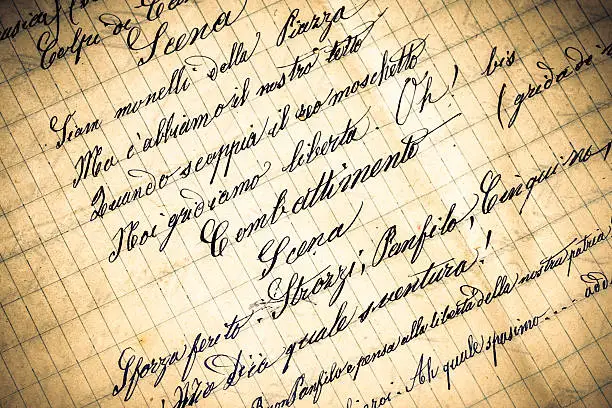 Colpi di
Scena
Siam monelli della Piazza
Ma c'abbiamo il nostro tetto
Quando scoppia il reo moschetto
Noi gridiamo libertà. Oh! bis
(grida di
Combattimento
Scena
Sforza ferito. Strozzi, Panfilo, Cinquino,
Mio Dio quale sventura!
Buon Panfilo e pensa alla libertà della nostra patria
Ah quale spasimo... add